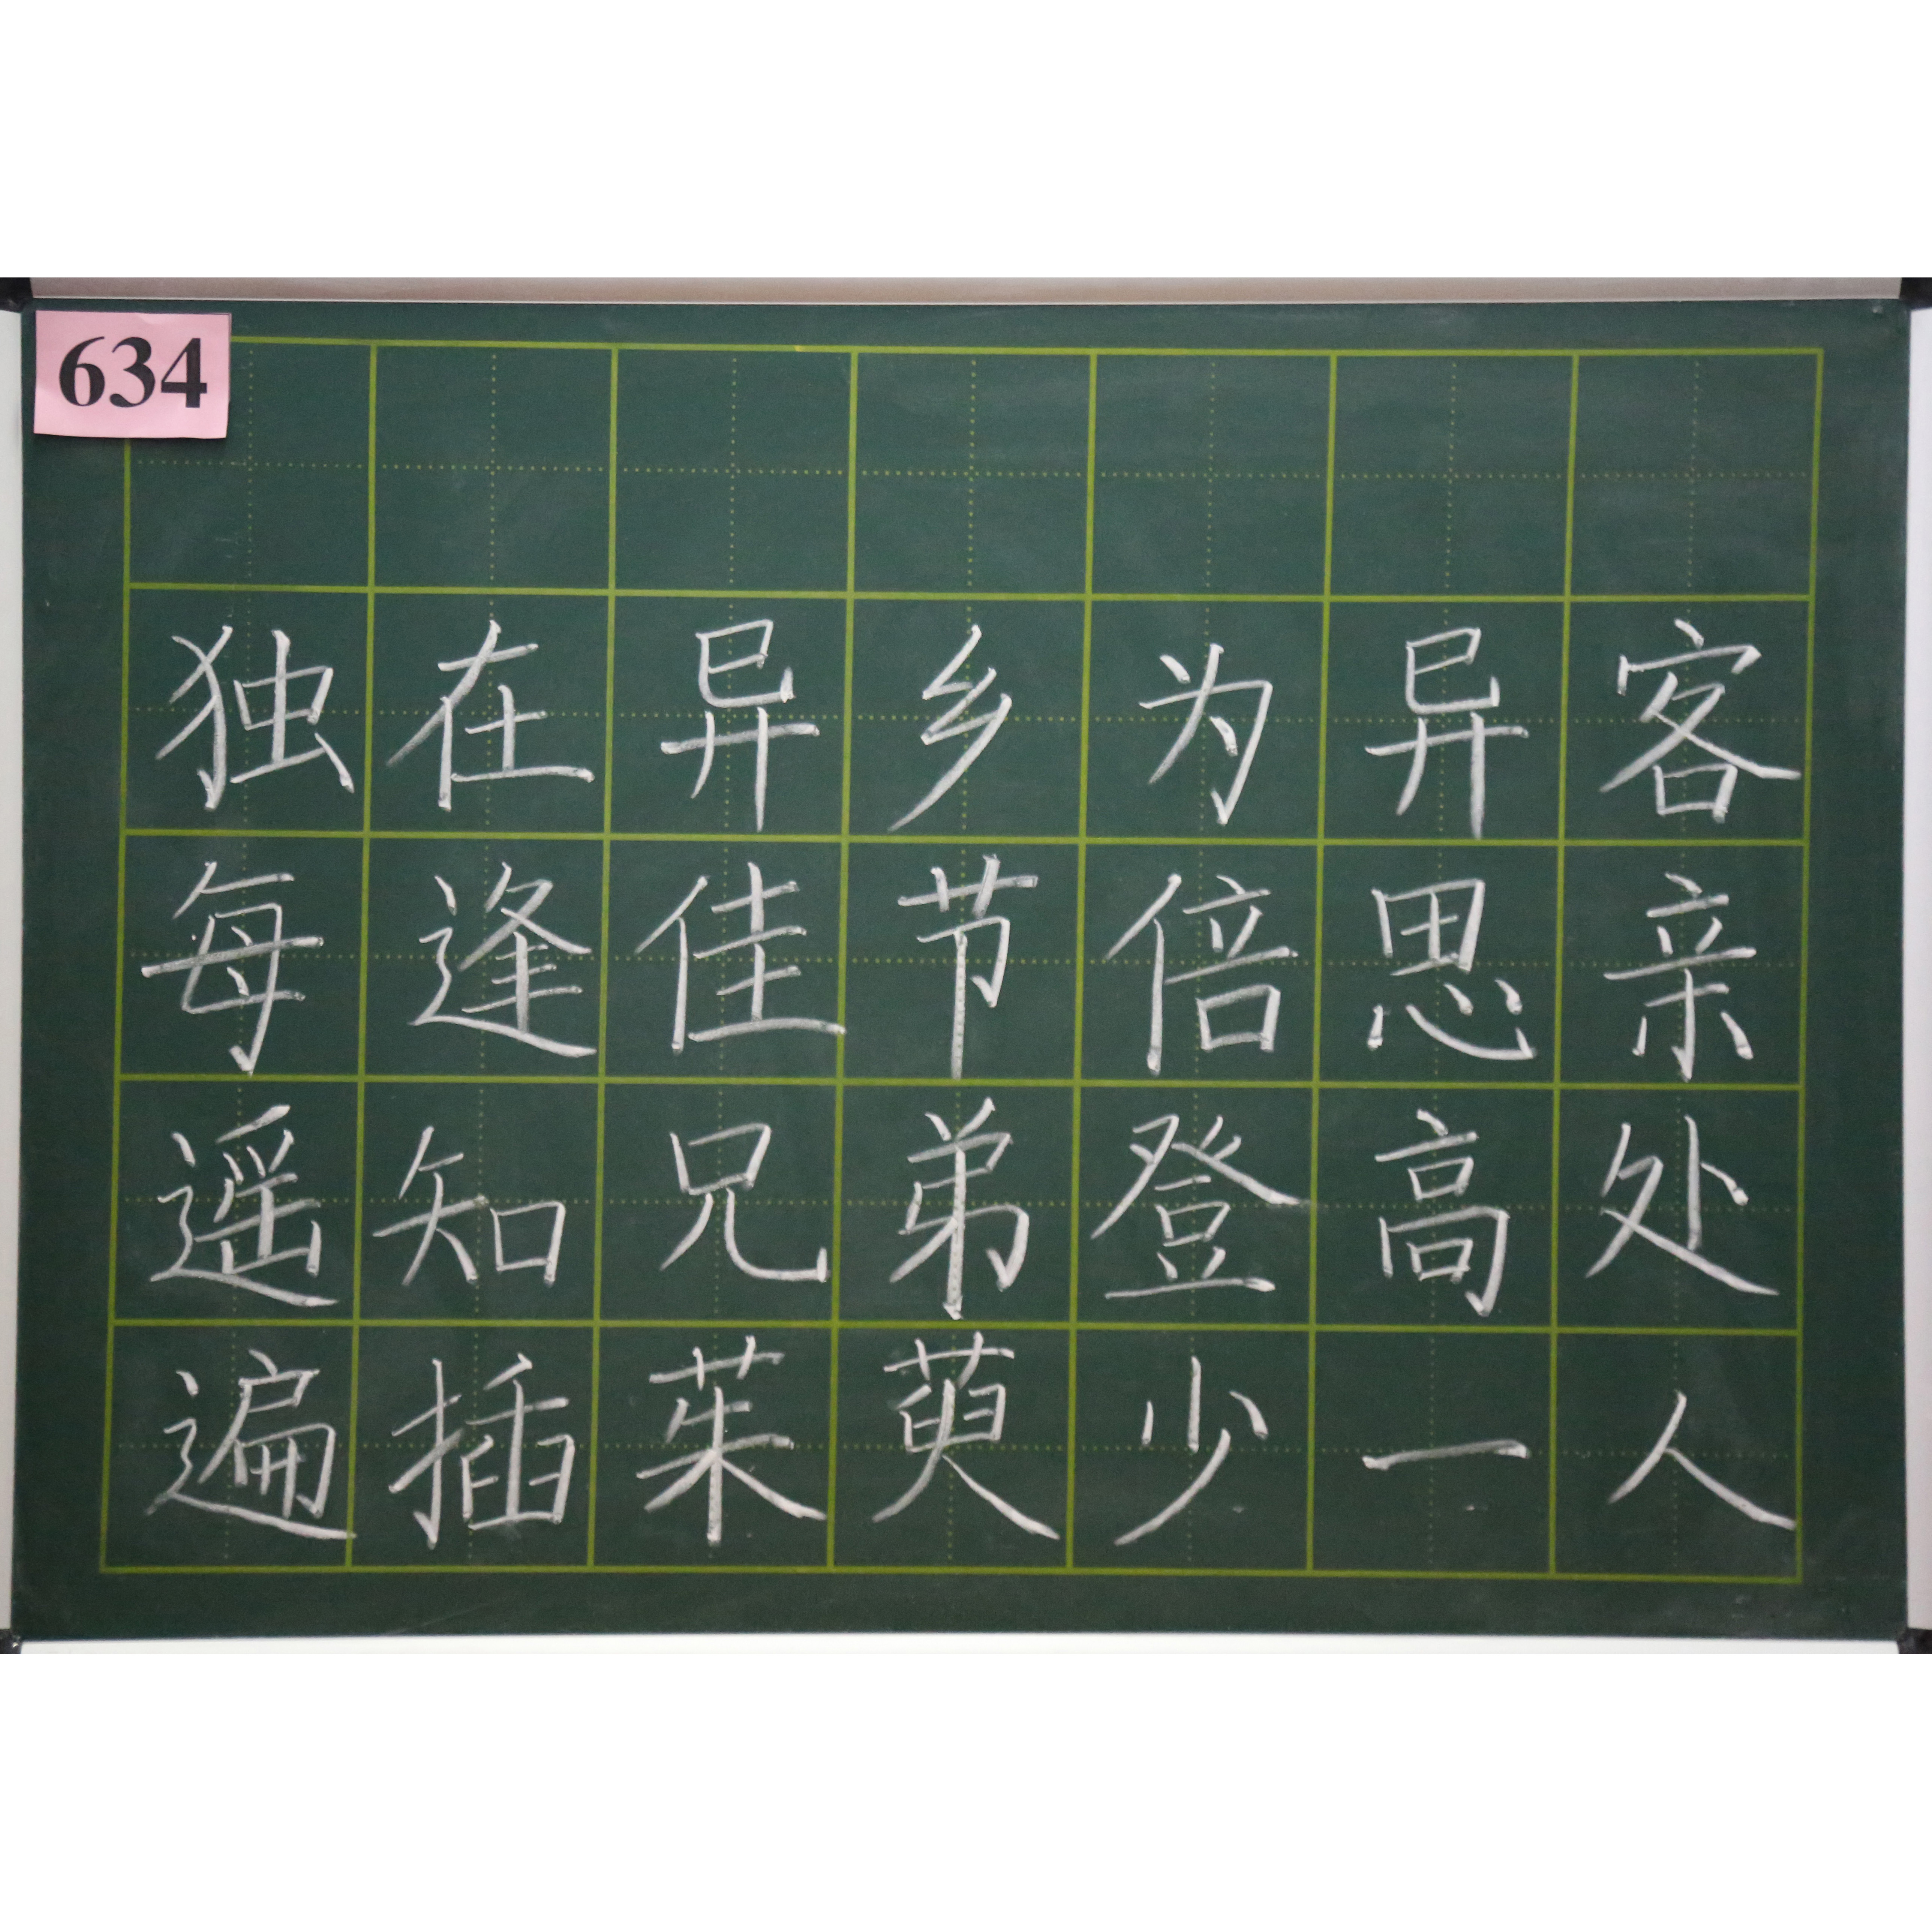 634
独在异乡为异客
每逢佳节倍思亲
遥知兄弟登高处
遍插茱萸少一人